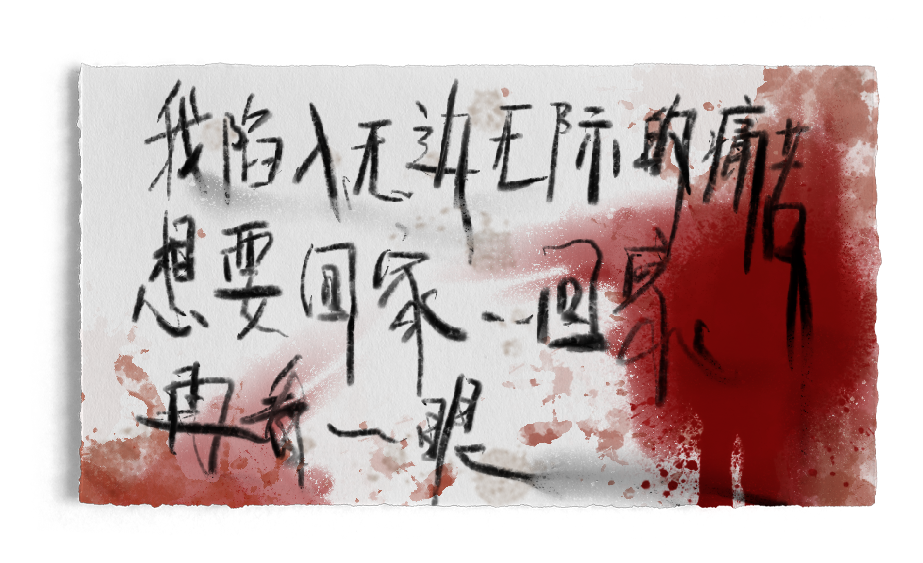 我陷入无边无际的痛苦
想要回家……回家
再看一眼